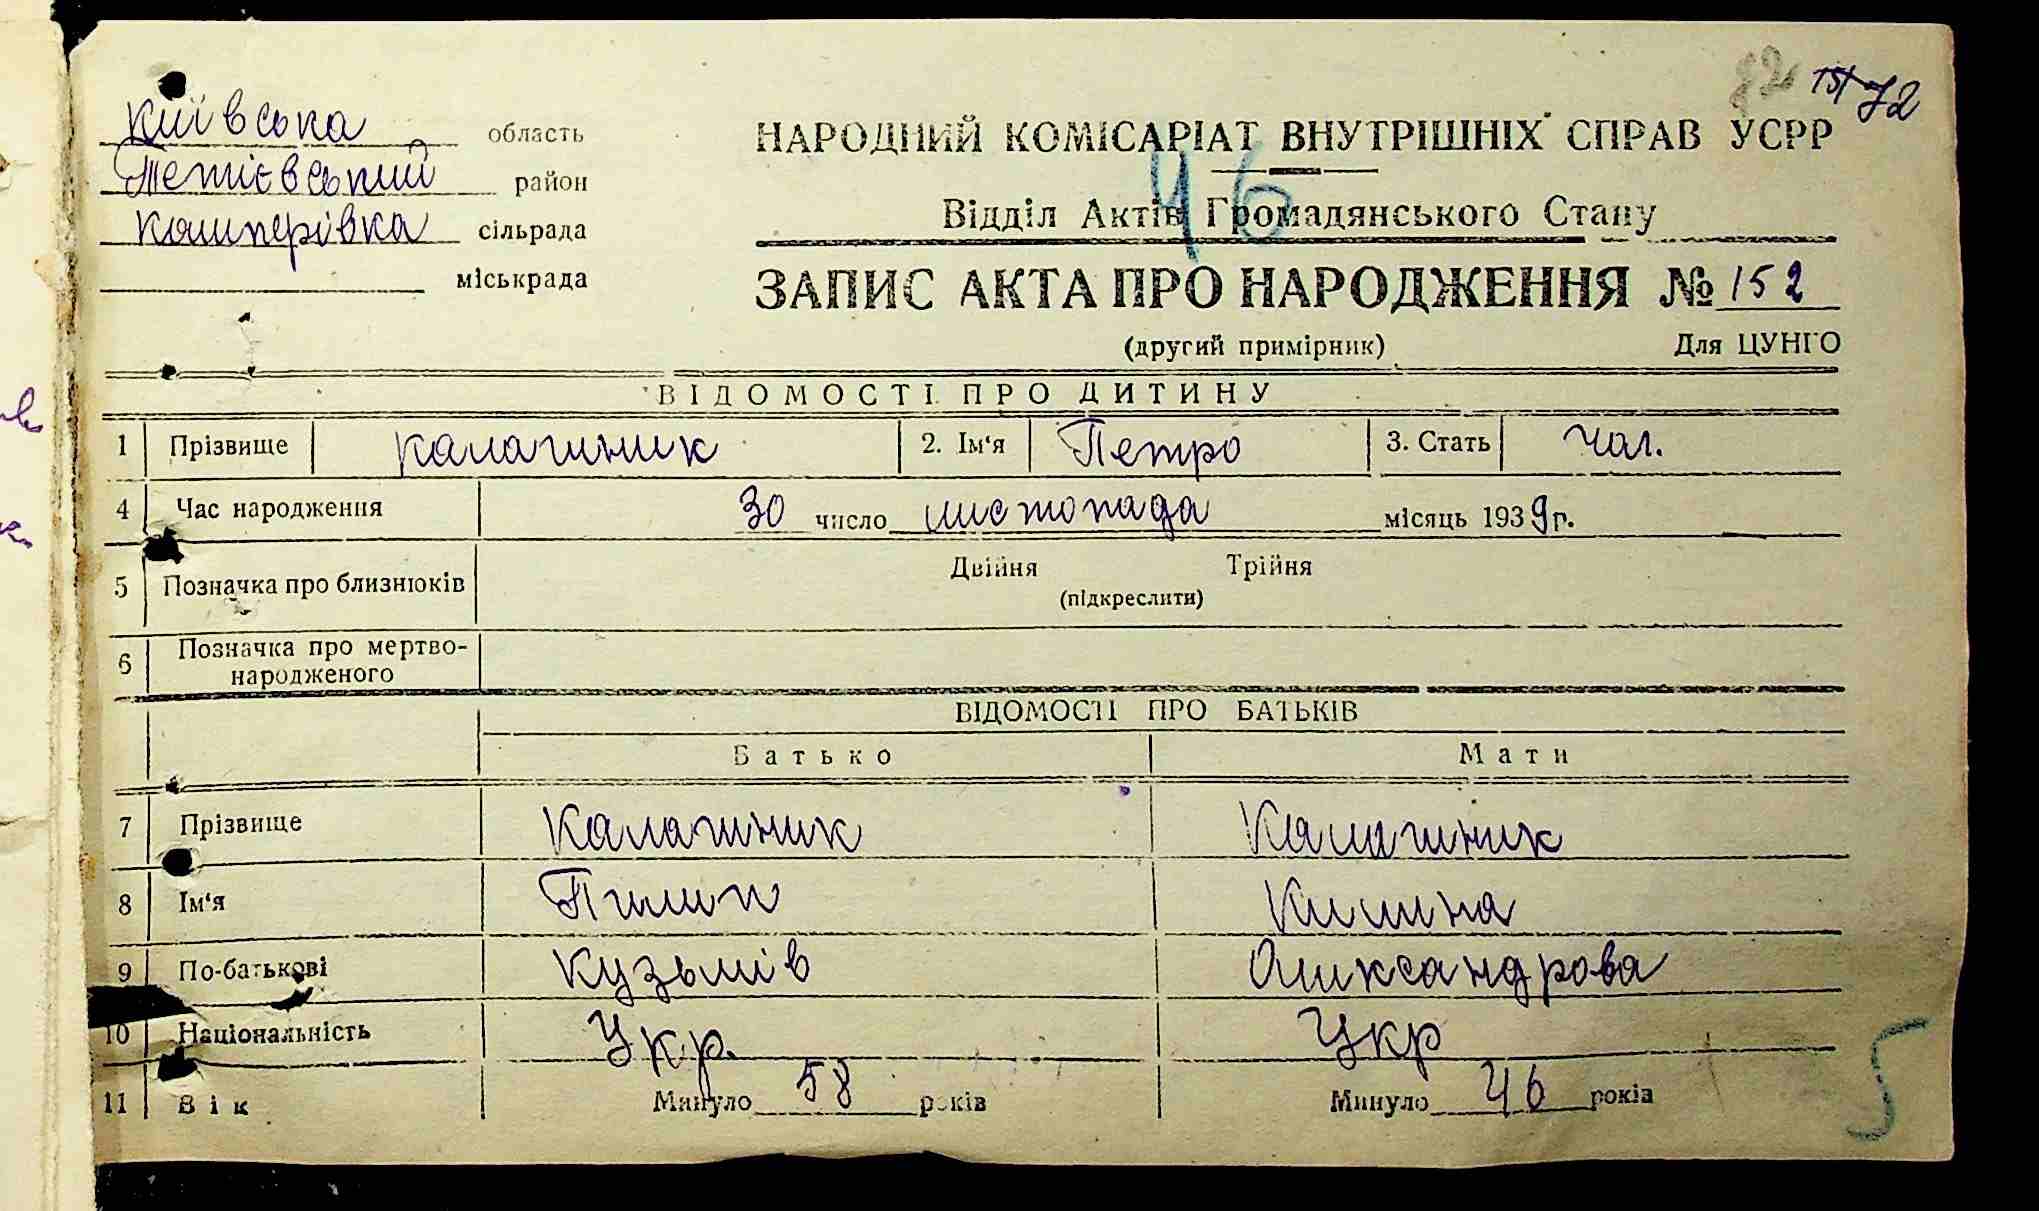 82 151 72
Київська область
Тетієвський район
Кашперівка сільрада
міськрада
НАРОДНИЙ КОМІСАРІАТ ВНУТРІШНІХ СПРАВ УСРР
46
Відділ Актів Громадянського Стану
ЗАПИС АКТА ПРО НАРОДЖЕННЯ № 152
(другий примірник) Для ЦУНГО
ВІДОМОСТІ ПРО ДИТИНУ
1 Прізвище Калашник 2. Ім‘я Петро 3. Стать чол.
4 Час народження 30 число листопада місяць 1939 г.
5 Позначка про близнюків Двійня Трійня
(підкреслити)
6 Позначка про мертво-
народженого
ВІДОМОСТІ ПРО БАТЬКІВ
Батько Мати
7 Прізвище Калашник Калашник
8 Ім‘я Пилип Килина
9 По-батькові Кузьмів Оликсандрова
10 Національність Укр. Укр
11 Вік Минуло 58 років Минуло 46 років
5